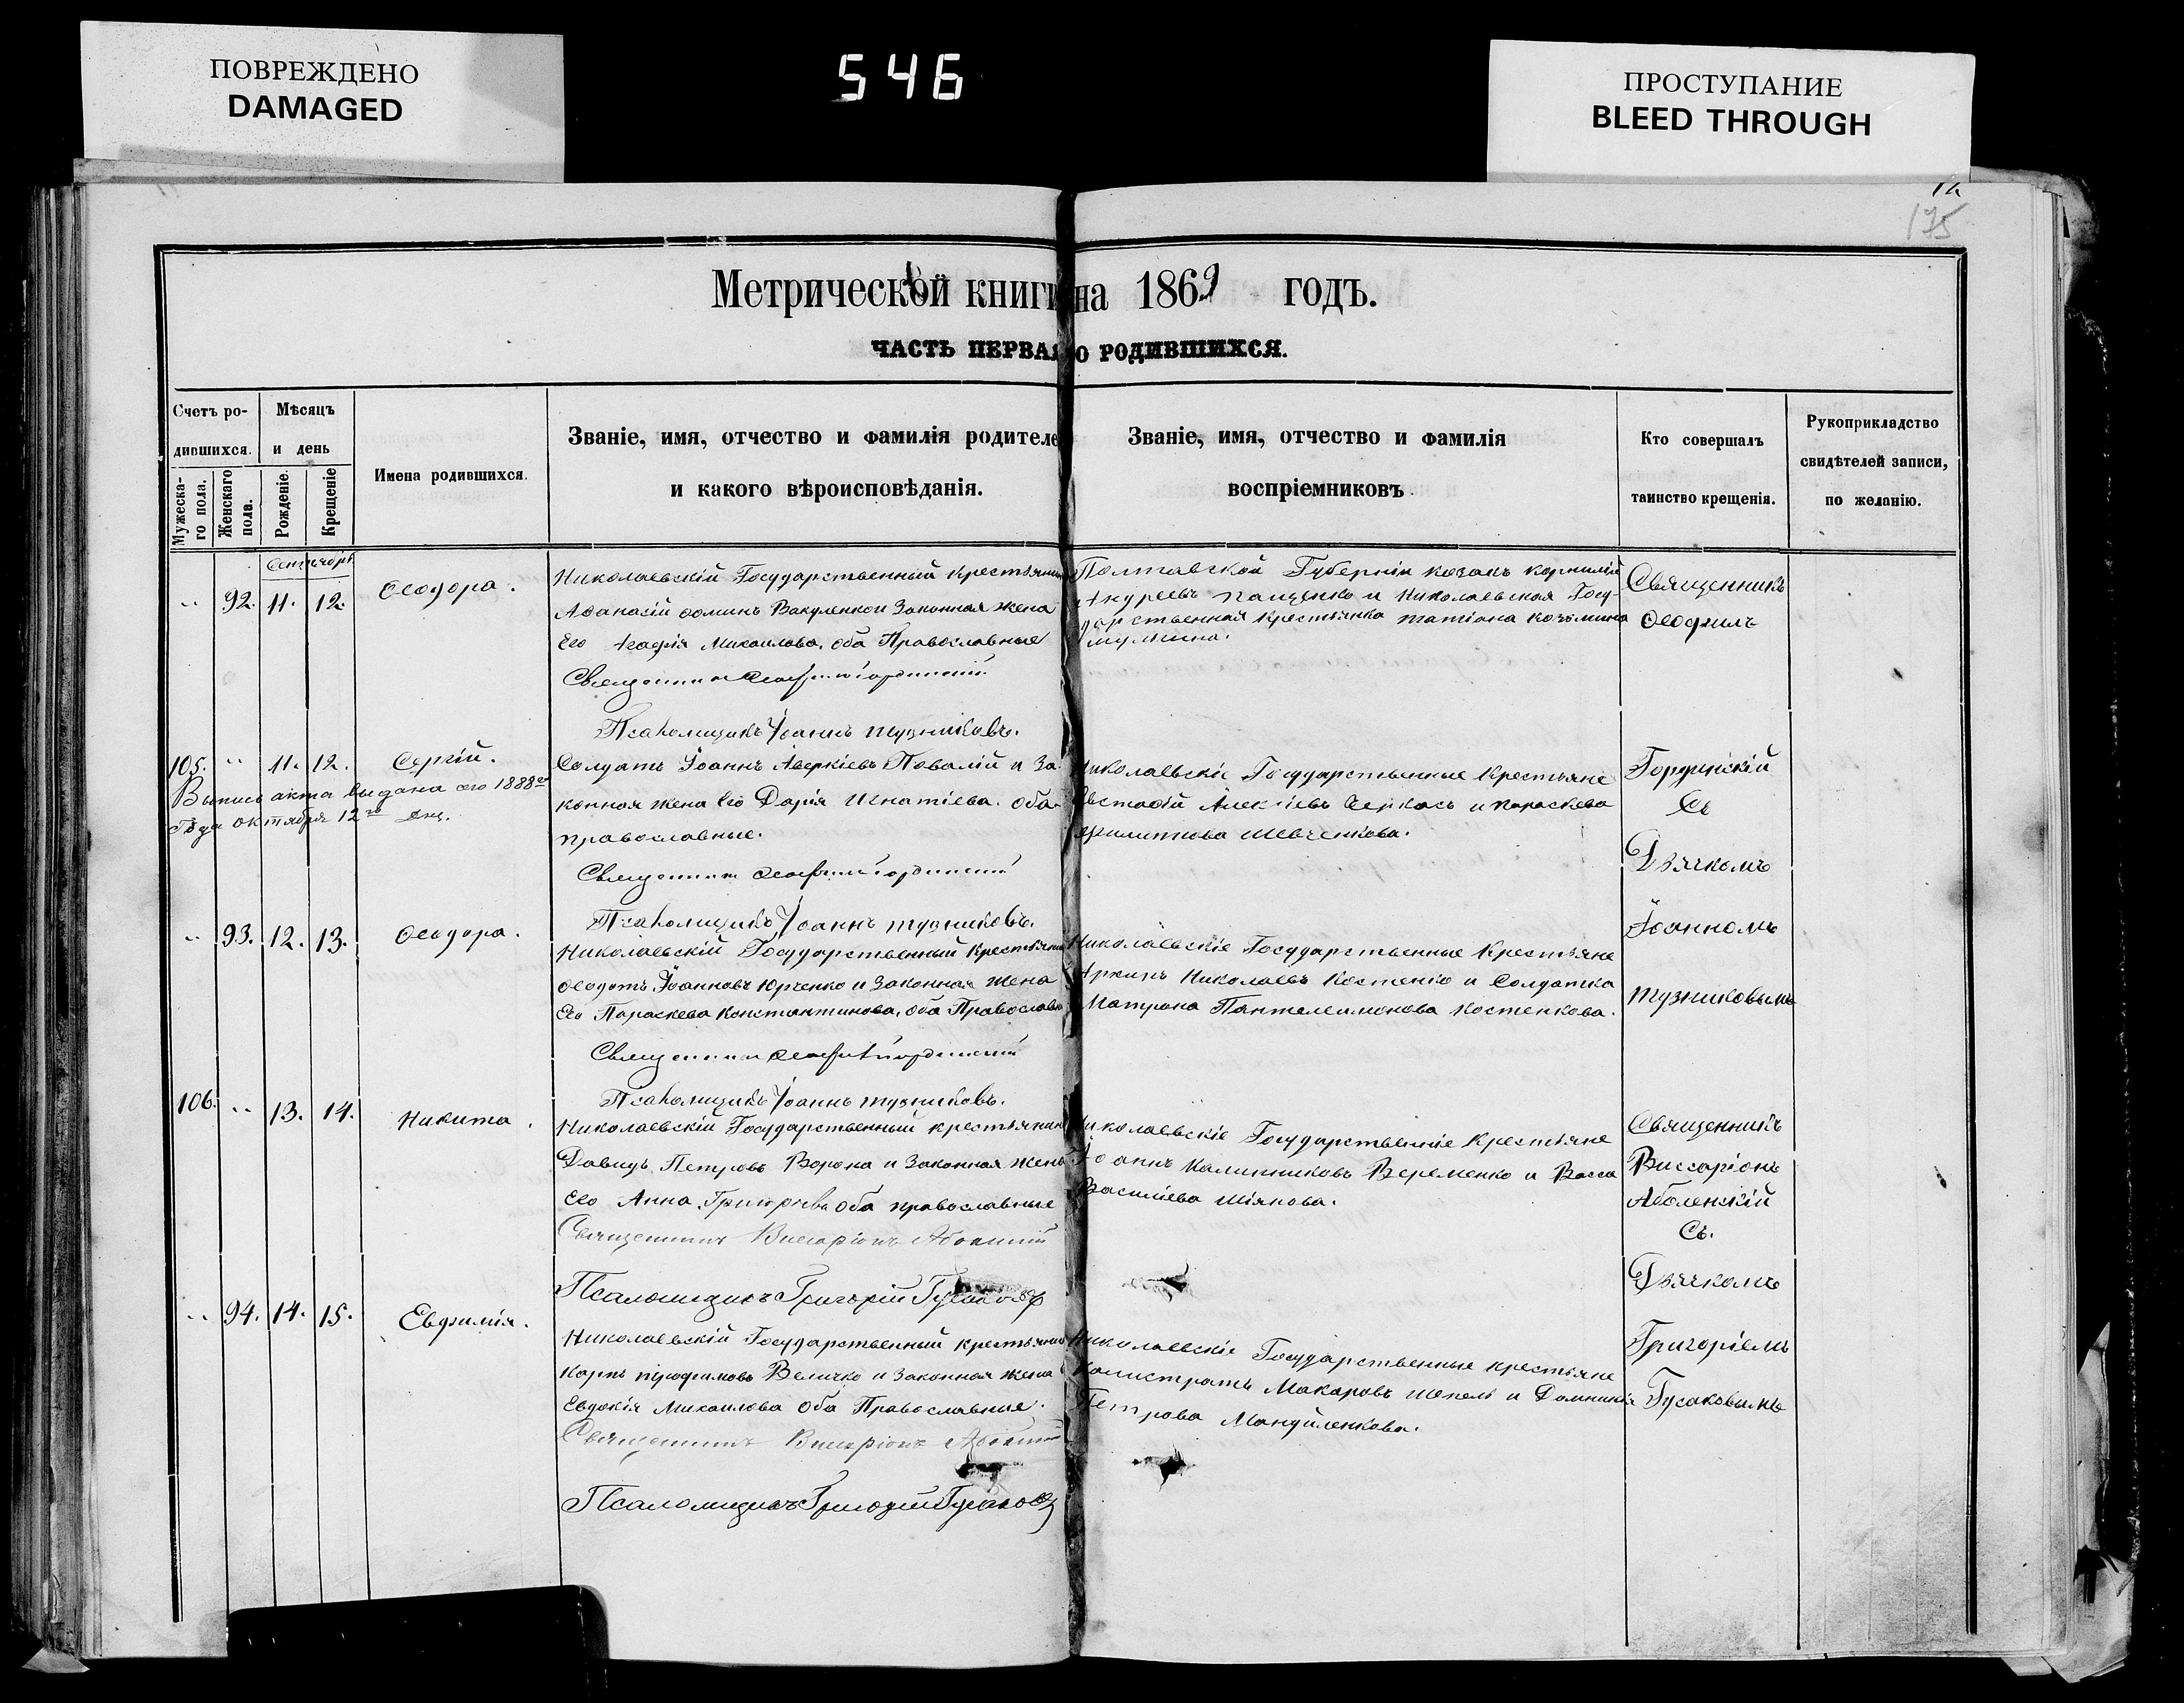 ПОВРЕЖДЕНО
DAMAGED
546
ПРОСТУПАНИЕ
BLEED THROUGH
175
Метрической книги на 1869 годъ.
ЧАСТЬ ПЕРВАЯ О РОДИВШИХСЯ.
Счетъ ро-
дившихся.
Мужеска-
го пола.
Женскаго
пола.
Мѣсяцъ
и день
Рожденіе.
Крещеніе
Имена родившихся.
Званіе, имя, отчество и фамилія родителе
и какого вѣроисповѣданія.
Званіе, имя, отчество и фамилія
воспріемниковъ.
Кто совершалъ
таинство крещенія.
Рукоприкладство
свидѣтелей записи,
по желанію.
92. 11. 12. Ѳеодора.
Николаевскій Государственный крестьянин
Аѳанасій Ѳоминъ Вакуленко и Законная жена
Его Агафія Михаилова, оба Православные
Псаломщикъ Іоаннъ Тузниковъ.
Полтавской Губерніи козакъ Корнилій
Андреевъ Пащенко и Николаевская Госу-
дарственная крестьянка Татіана Козьмина
Священникъ
Ѳеофилъ
105. 11. 12. Сергій.
Выпись акта выдана сего 1888го
Года октября 12го дня.
Солдатъ Іоаннъ Аверкіевъ Повалій и За-
конная жена Его Дарія Игнатіева. оба
православные.
Псаломщикъ Іоаннъ Тузниковъ.
Николаевскіе Государственные крестьяне
Евстафій Алексіевъ Черкасъ и Параскева
Филиппова Шевченкова.
Гординскій
Съ
Дьячкомъ
93. 12. 13. Ѳеодора.
Николаевскій Государственный крестьянин
Ѳеодотъ Іоанновъ Юрченко и Законная жена
Его Параскева Константинова, оба Православн
Псаломщикъ Іоаннъ Тузниковъ.
Николаевскіе Государственные Крестьяне
Архипъ Николаевъ Костенко и Солдатка
Матрона Пантелеимонова Костенкова.
Іоанномъ
Тузниковымъ
106. 13. 14. Никита.
Николаевскій Государственный крестьянин
Давидъ Петровъ Ворона и Законная жена
Его Анна Григорьева оба православные
Священникъ Виссаріонъ
Псаломщикъ Григорій Гусаковъ
Николаевскіе Государственные Крестьяне
Іоаннъ Калинниковъ Веременко и Васса
Василіева Шіянова.
Священникъ
Виссаріонъ
Аболенскій
Съ.
Дьячкомъ
94. 14. 15. Евфимія.
Николаевскій Государственный крестьянин
Карпъ Трофимовъ Величко и Законная жена
Евдокія Михаилова Оба Православные.
Священникъ Виссаріонъ
Псаломщикъ Григорій Гусаковъ
Николаевскіе Государственные крестьяне
Калистратъ Макаровъ Шепель и Домникія
Петрова Мануйленкова.
Григоріемъ
Гусаковымъ